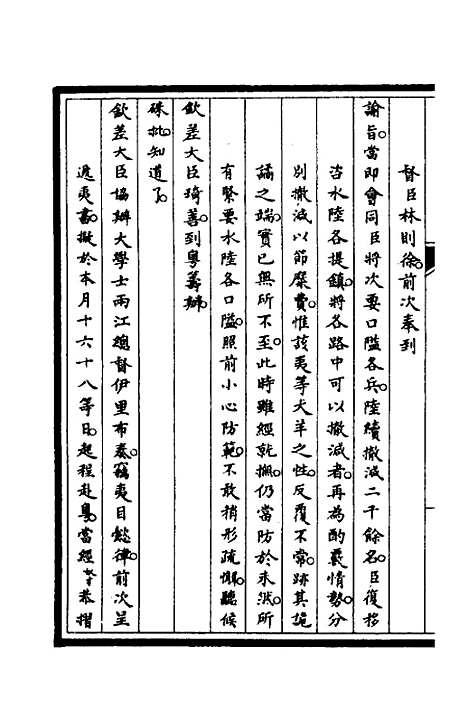 督臣林則徐。前次奉到
諭旨。當即會同臣將次要口隘各兵。陸續撤減二千餘名。臣復移
咨水陸各提鎮。將各路中可以撤減者。再為酌覈情勢。分
別撤減。以節糜費。惟該夷等犬羊之性。反覆不常。跡其詭
譎之端。實已無所不至。此時雖經就撫。仍當防於未然。所
有緊要水陸各口隘。照前小心防範。不敢稍形疏懈。聽候
欽差大臣琦善。到粵籌辦。
硃批。知道了。
欽差大臣協辦大學士兩江總督伊里布奏。竊夷目懿律。前次呈
遞夷書。擬於本月十六十八等日。起程赴粵。當經奴才恭摺